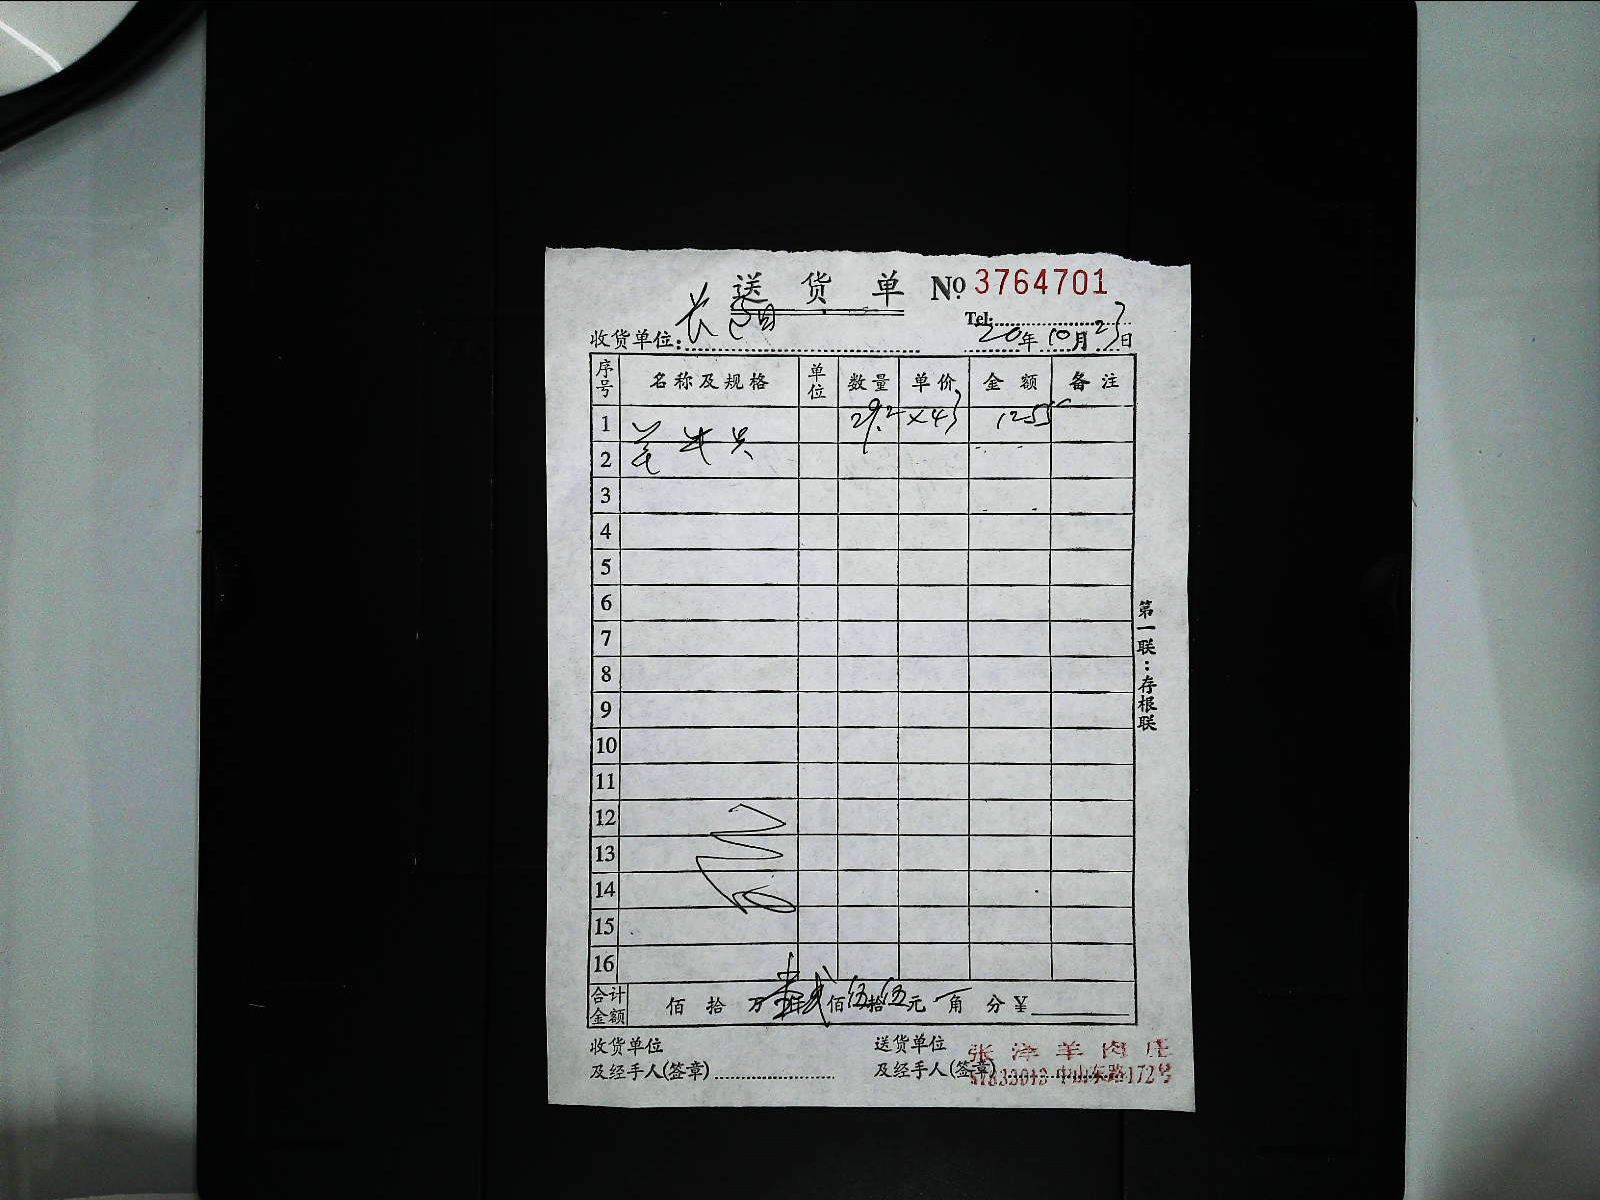 送 货 单 No 3764701
Tel:
收货单位: 长 20年10月23日
序号 名称及规格 单位 数量 单价 金额 备注
1 29.2 ×43 1255
2 羊
3
4
5
6
7
8
9
10
11
12
13
14
15
16
合计金额 佰 拾 万壹仟贰佰伍拾伍元 角 分 ¥
收货单位 送货单位
及经手人(签章) 及经手人(签章)
羊肉庄
中山东路172号
第一联:存根联